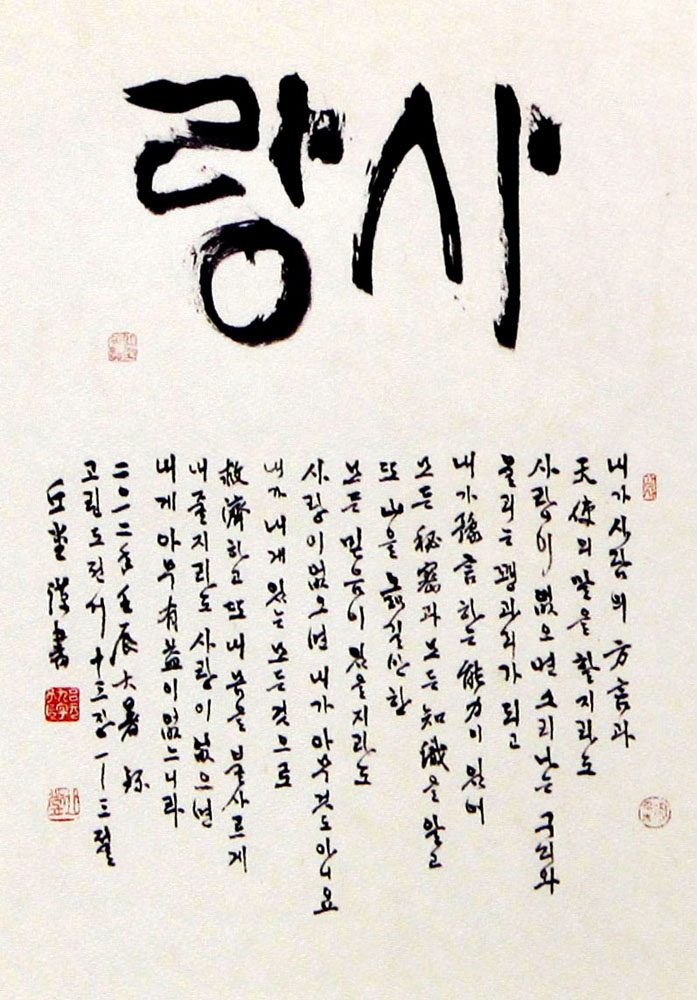 사랑
내가 사람의 方言과
天使의 말을 할지라도
사랑이 없으면 소리나는 구리와
울리는 꽹과리가 되고
내가 豫言하는 能力이 있어
모든 秘密과 모든 知識을 알고
또 山을 옮길만한
모든 믿음이 있을지라도
사랑이 없으면 내가 아무것도 아니요
내가 내게 있는 모든것으로
救濟하고 또 내 몸을 불사르게
내줄지라도 사랑이 없으면
내게 아무 有益이 없느니라
二〇一二年 壬辰 大暑
고린도전서 十三장 一~三절
丘堂 書